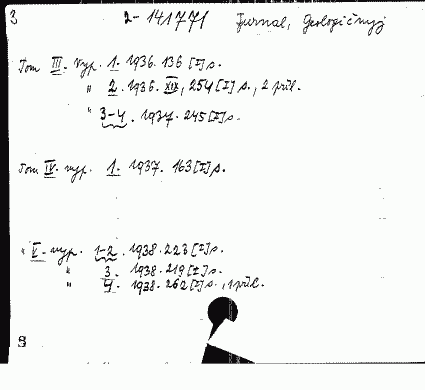 3 2-141771 Žurnal, Geologičnyj
Tom III. Vyp. 1. 1936. 136 [I] s.
" 2. 1936. XIX, 254 [I] s., 2 pril.
" 3-4. 1937. 245 [I] s.
Tom IV. vyp. 1. 1937. 163 [I] s.
" V. vyp. 1-2. 1938. 223 [I] s.
" 3. 1938. 219 [I] s.
" 4. 1938. 262 [I] s., 1 pril.